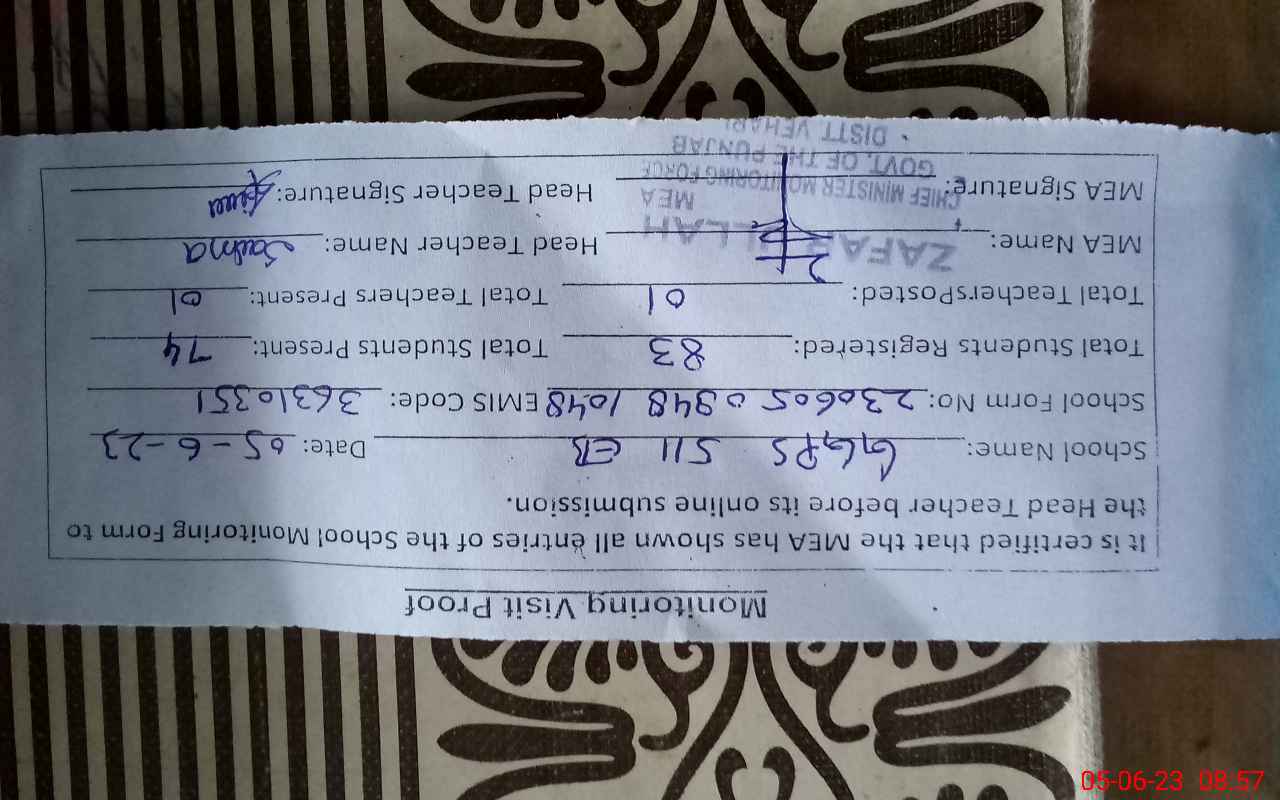 Monitoring Visit Proof
It is certified that the MEA has shown all entries of the School Monitoring Form to
the Head Teacher before its online submission.
School Name: GGPS 511 EB Date: 05-6-23
School Form No: 230605 0948 1048 EMIS Code: 36310351
Total Students Registered: 83 Total Students Present: 74
Total TeachersPosted: 01 Total Teachers Present: 01
MEA Name: Head Teacher Name: Salma
MEA Signature: Head Teacher Signature:
ZAFAR ULLAH
MEA
CHIEF MINISTER MONITORING FORCE
GOVT. OF THE PUNJAB
DISTT. VEHARI
05-06-23 08:57